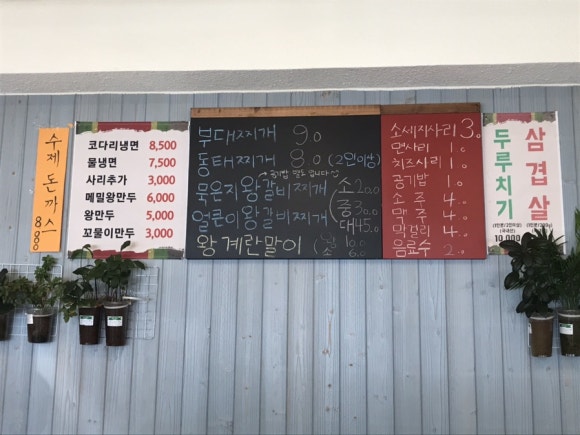 수제 돈까스
8.0
코다리냉면 8,500
물냉면 7,500
사리추가 3,000
메밀왕만두 6,000
왕만두 5,000
꼬물이만두 3,000
부대찌개 9.0
동태찌개 8.0 (2인이상)
묵은지왕갈비찌개 소 20.0
얼큰이왕갈비찌개 중 30.0
대 45.0
왕계란말이 10.0
소 6.0
소세지사리 3.0
면사리 1.0
치즈사리 1.0
공기밥 1.0
소주 4.0
맥주 4.0
막걸리 4.0
음료수 2.0
두루치기
10,000
삼겹살